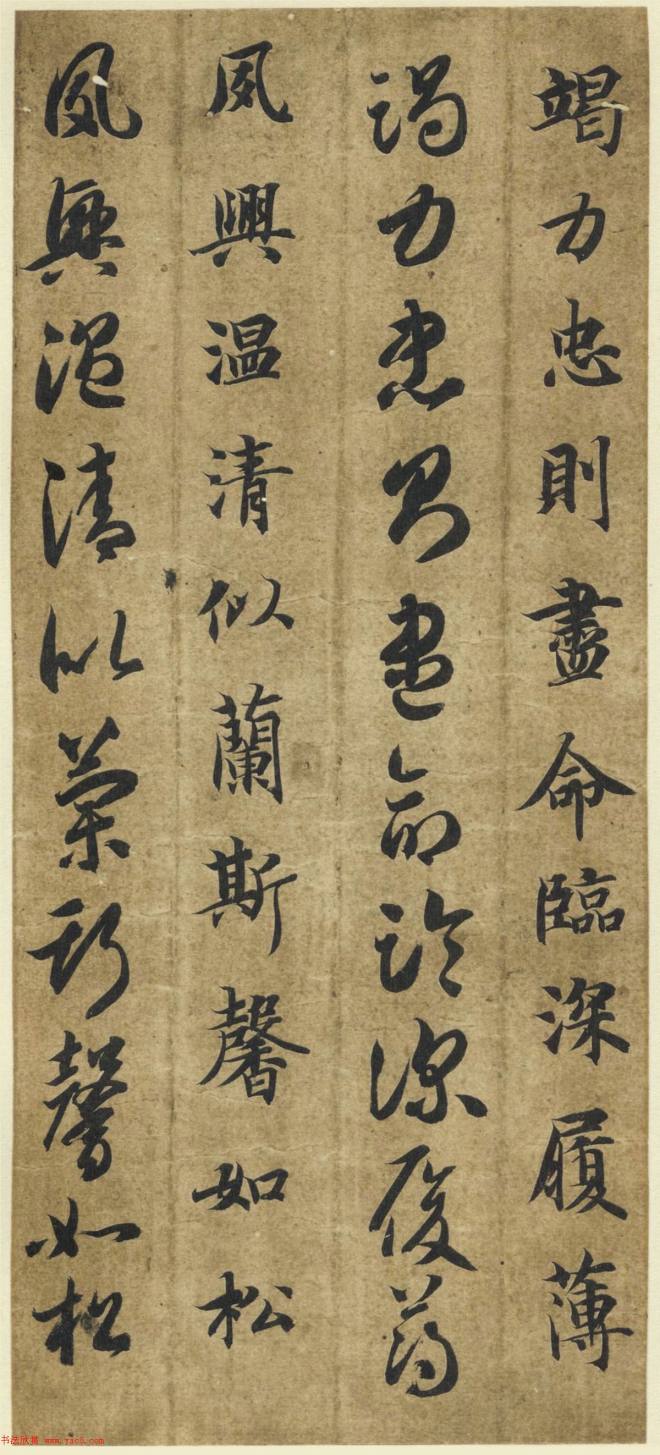 竭力忠則盡命臨深履薄
竭力忠則盡命臨深履薄
夙興温清似蘭斯馨如松
夙興温清似蘭斯馨如松
书法欣赏 www.yac8.com